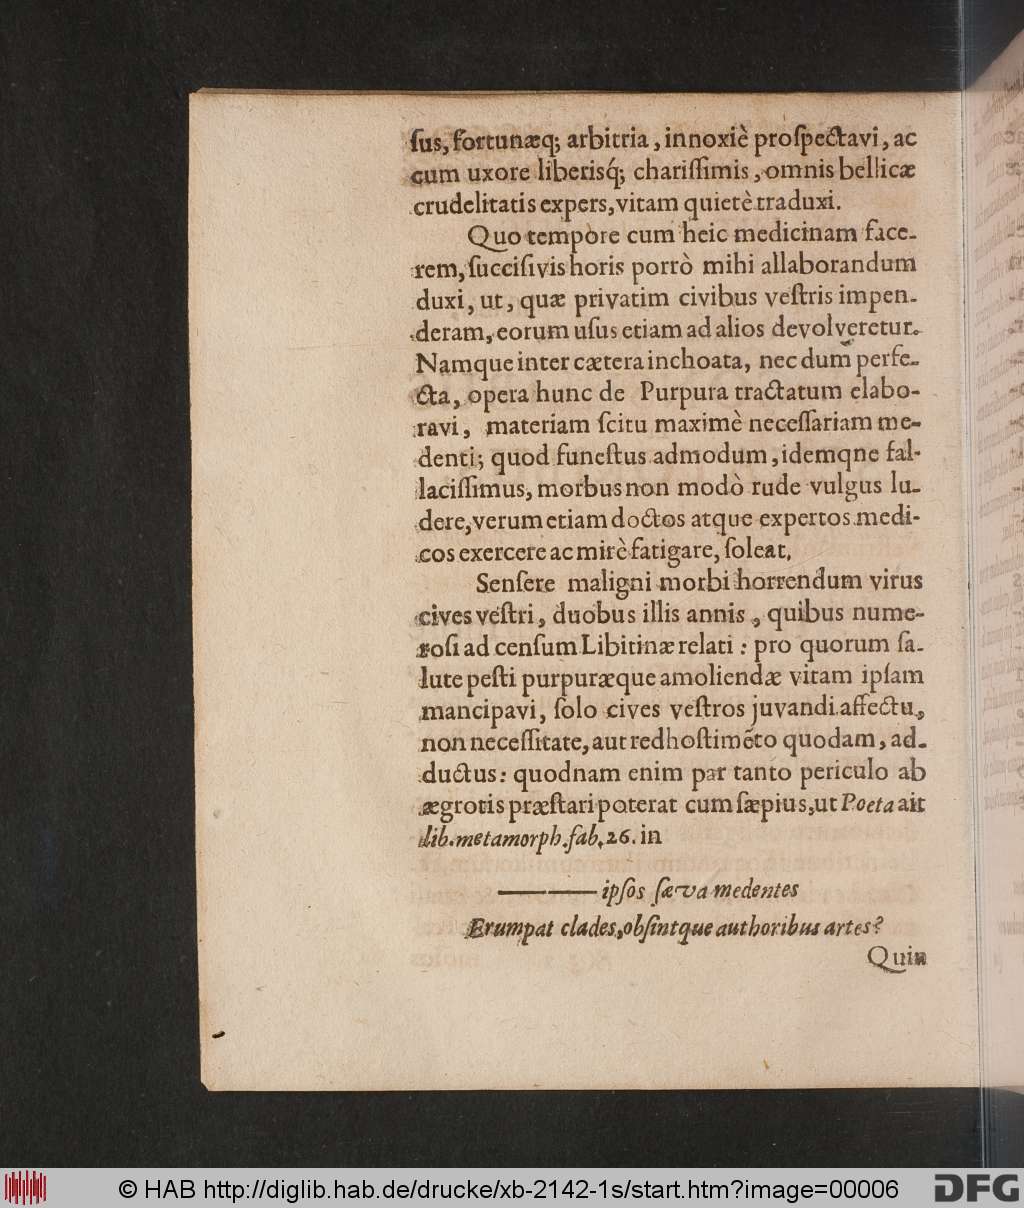 ſus, fortunæq; arbitria, innoxiè proſpectavi, ac
cum uxore liberisq́; chariſſimis, omnis bellicæ
crudelitatis expers, vitam quietè traduxi.
Quo tempore cum heic medicinam face-
rem, ſucciſivis horis porrò mihi allaborandum
duxi, ut, quæ privatim civibus veſtris impen-
deram, eorum uſus etiam ad alios devolveretur.
Namque inter cætera inchoata, nec dum perfe-
cta, opera hunc de Purpura tractatum elabo-
ravi, materiam ſcitu maximè neceſſariam me-
denti; quod funeſtus admodum, idemqne fal-
laciſſimus, morbus non modò rude vulgus lu-
dere, verum etiam doctos atque expertos medi-
cos exercere ac mirè fatigare, ſoleat.
Senſere maligni morbi horrendum virus
cives veſtri, duobus illis annis, quibus nume-
roſi ad cenſum Libitinæ relati : pro quorum ſa-
lute peſti purpuræque amoliendæ vitam ipſam
mancipavi, ſolo cives veſtros juvandi affectu,
non neceſſitate, aut redhoſtimẽto quodam, ad-
ductus: quodnam enim par tanto periculo ab
ægrotis præſtari poterat cum ſæpius, ut Poeta ait
lib. metamorph. fab. 26. in
—— —— ipſos ſæva medentes
Erumpat clades, obſintque authoribus artes?
Quin
© HAB http://diglib.hab.de/drucke/xb-2142-1s/start.htm?image=00006
DFG